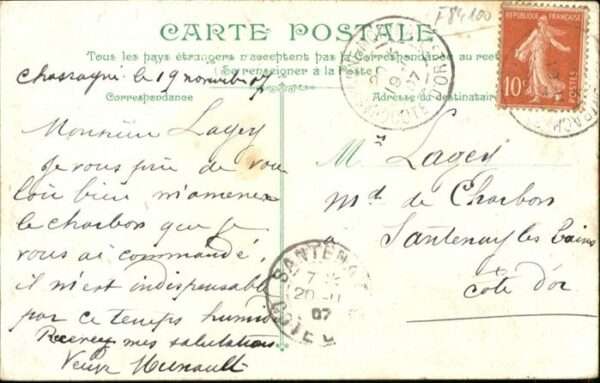 F84100
CARTE POSTALE
Tous les pays étrangers n'acceptent pas la Correspondance au recto
Se renseigner à la Poste
Chassagne le 19 novembre 07
Correspondance
Adresse du destinataire
RÉPUBLIQUE FRANÇAISE
10c
POSTES
Monsieur Lagey
Je vous prie de vou
loir bien m'amener
le charbon que je
vous ai commandé,
il m'est indispensable
par ce temps humide
Recevez mes salutations
Veuve
M. Lagey
Md de Charbons
à
Santenay les Bains
côte d'or
SANTENAY
7
20-11
07
CÔTE D'OR